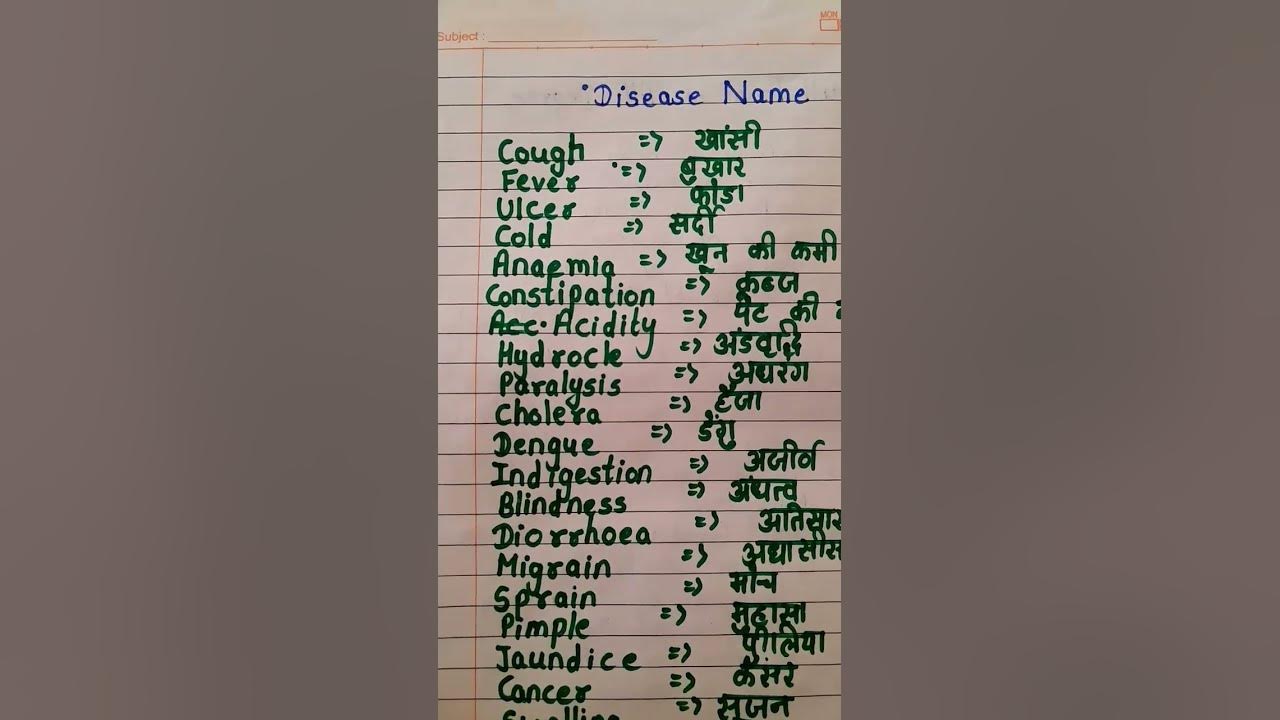 MON
Subject :
Disease Name
Cough => खांसी
Fever => बुखार
Ulcer => फोडा
Cold => सर्दी
Anaemia => खून की कमी
Constipation => कब्ज
Acc. Acidity => पेट की
Hydrocle => अंडवृद्धि
Paralysis => अधरंग
Cholera => हैजा
Dengue => डेंगु
Indigestion => अजीर्व
Blindness => अंधत्व
Diorrhoea => अतिसार
Migrain => अधासीस
Sprain => मोच
Pimple => मुहासा
Jaundice =>
Cancer => कैंसर
Swelling => सूजन